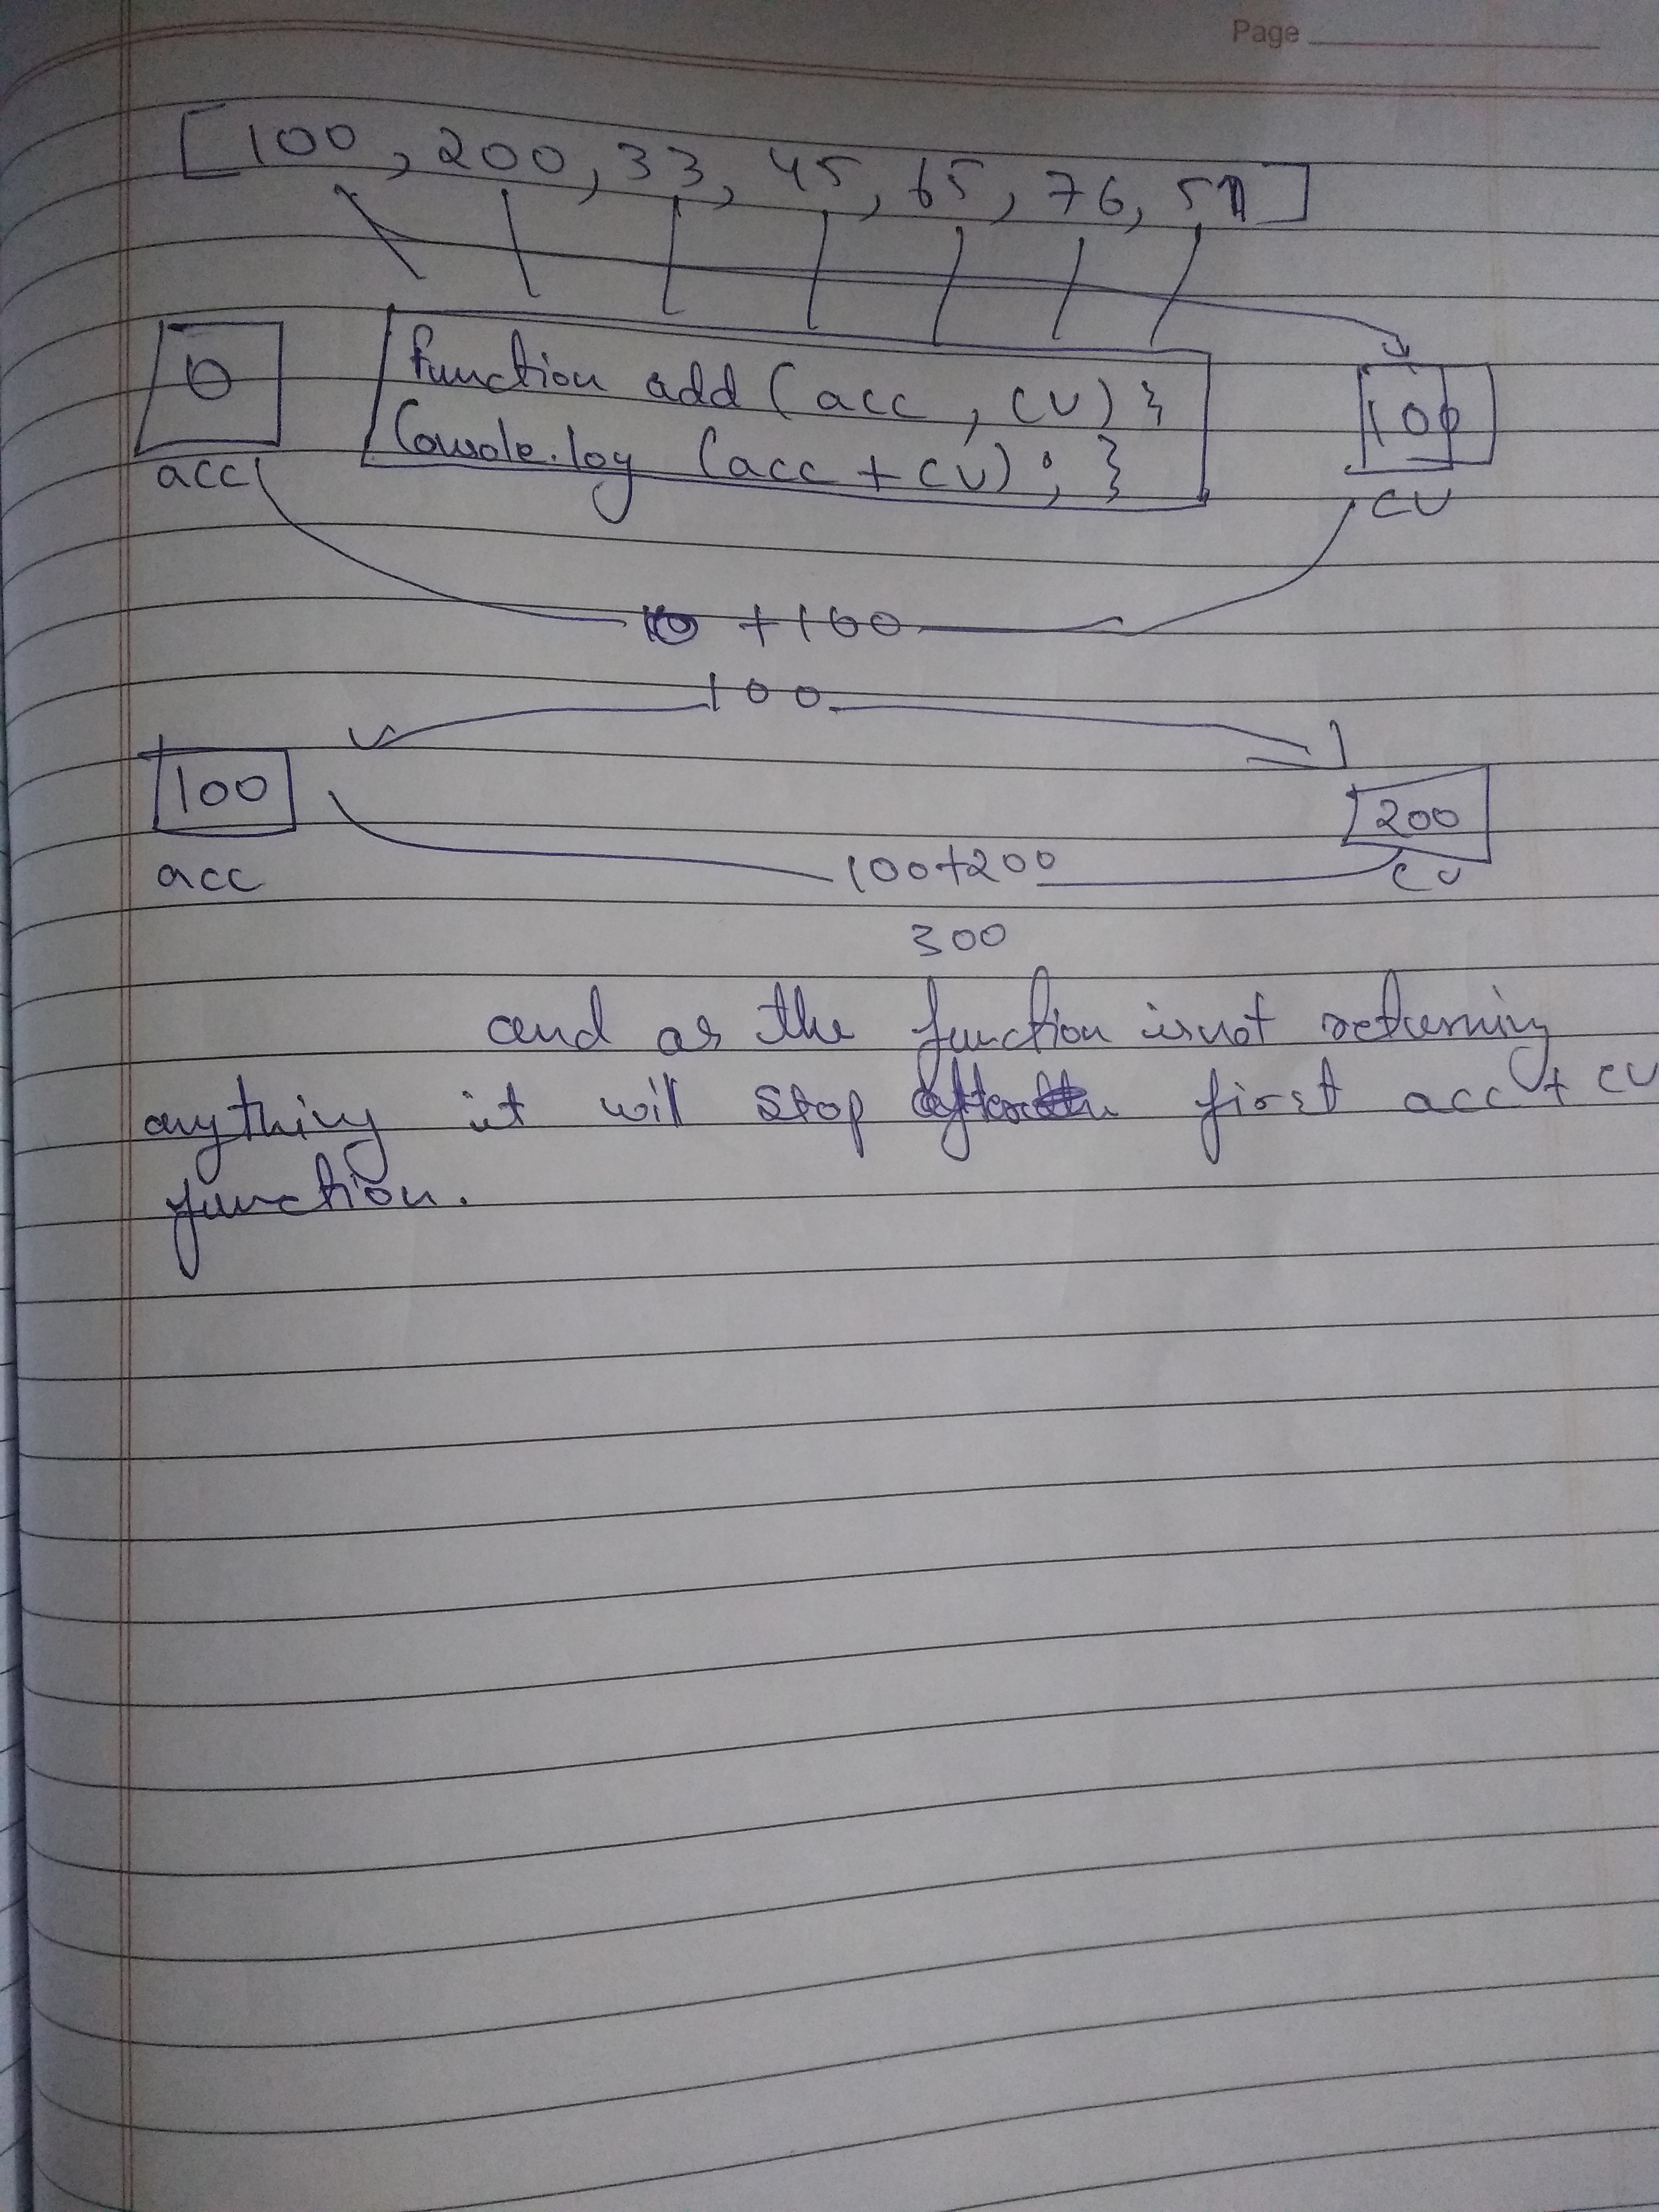 Page
[100, 200, 33, 45, 65, 76, 5]
0
function add (acc, cv) }
Console.log (acc + cv) ; }
100
acc
cv
0 + 100
100
100
200
acc
100+200
cv
300
and as the function is not returning
anything it will stop after first acc + cv
function.